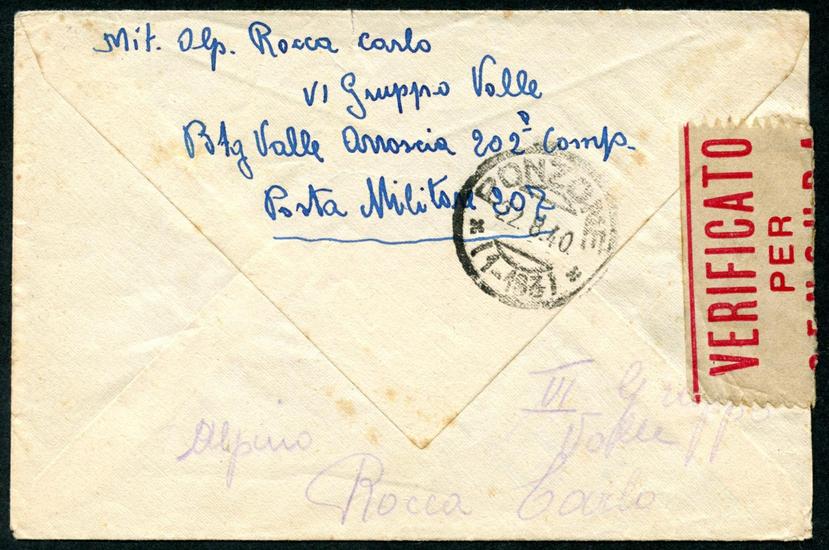 Mit. Alp. Rocca Carlo
VI Gruppo Valle
Btg Valle Arroscia 202ª Comp.
Posta Militare 207
PONZONE
22.8.40
(1-193)
VERIFICATO
PER
CENSURA
VI Gruppo
Alpino
Valle
Rocca Carlo